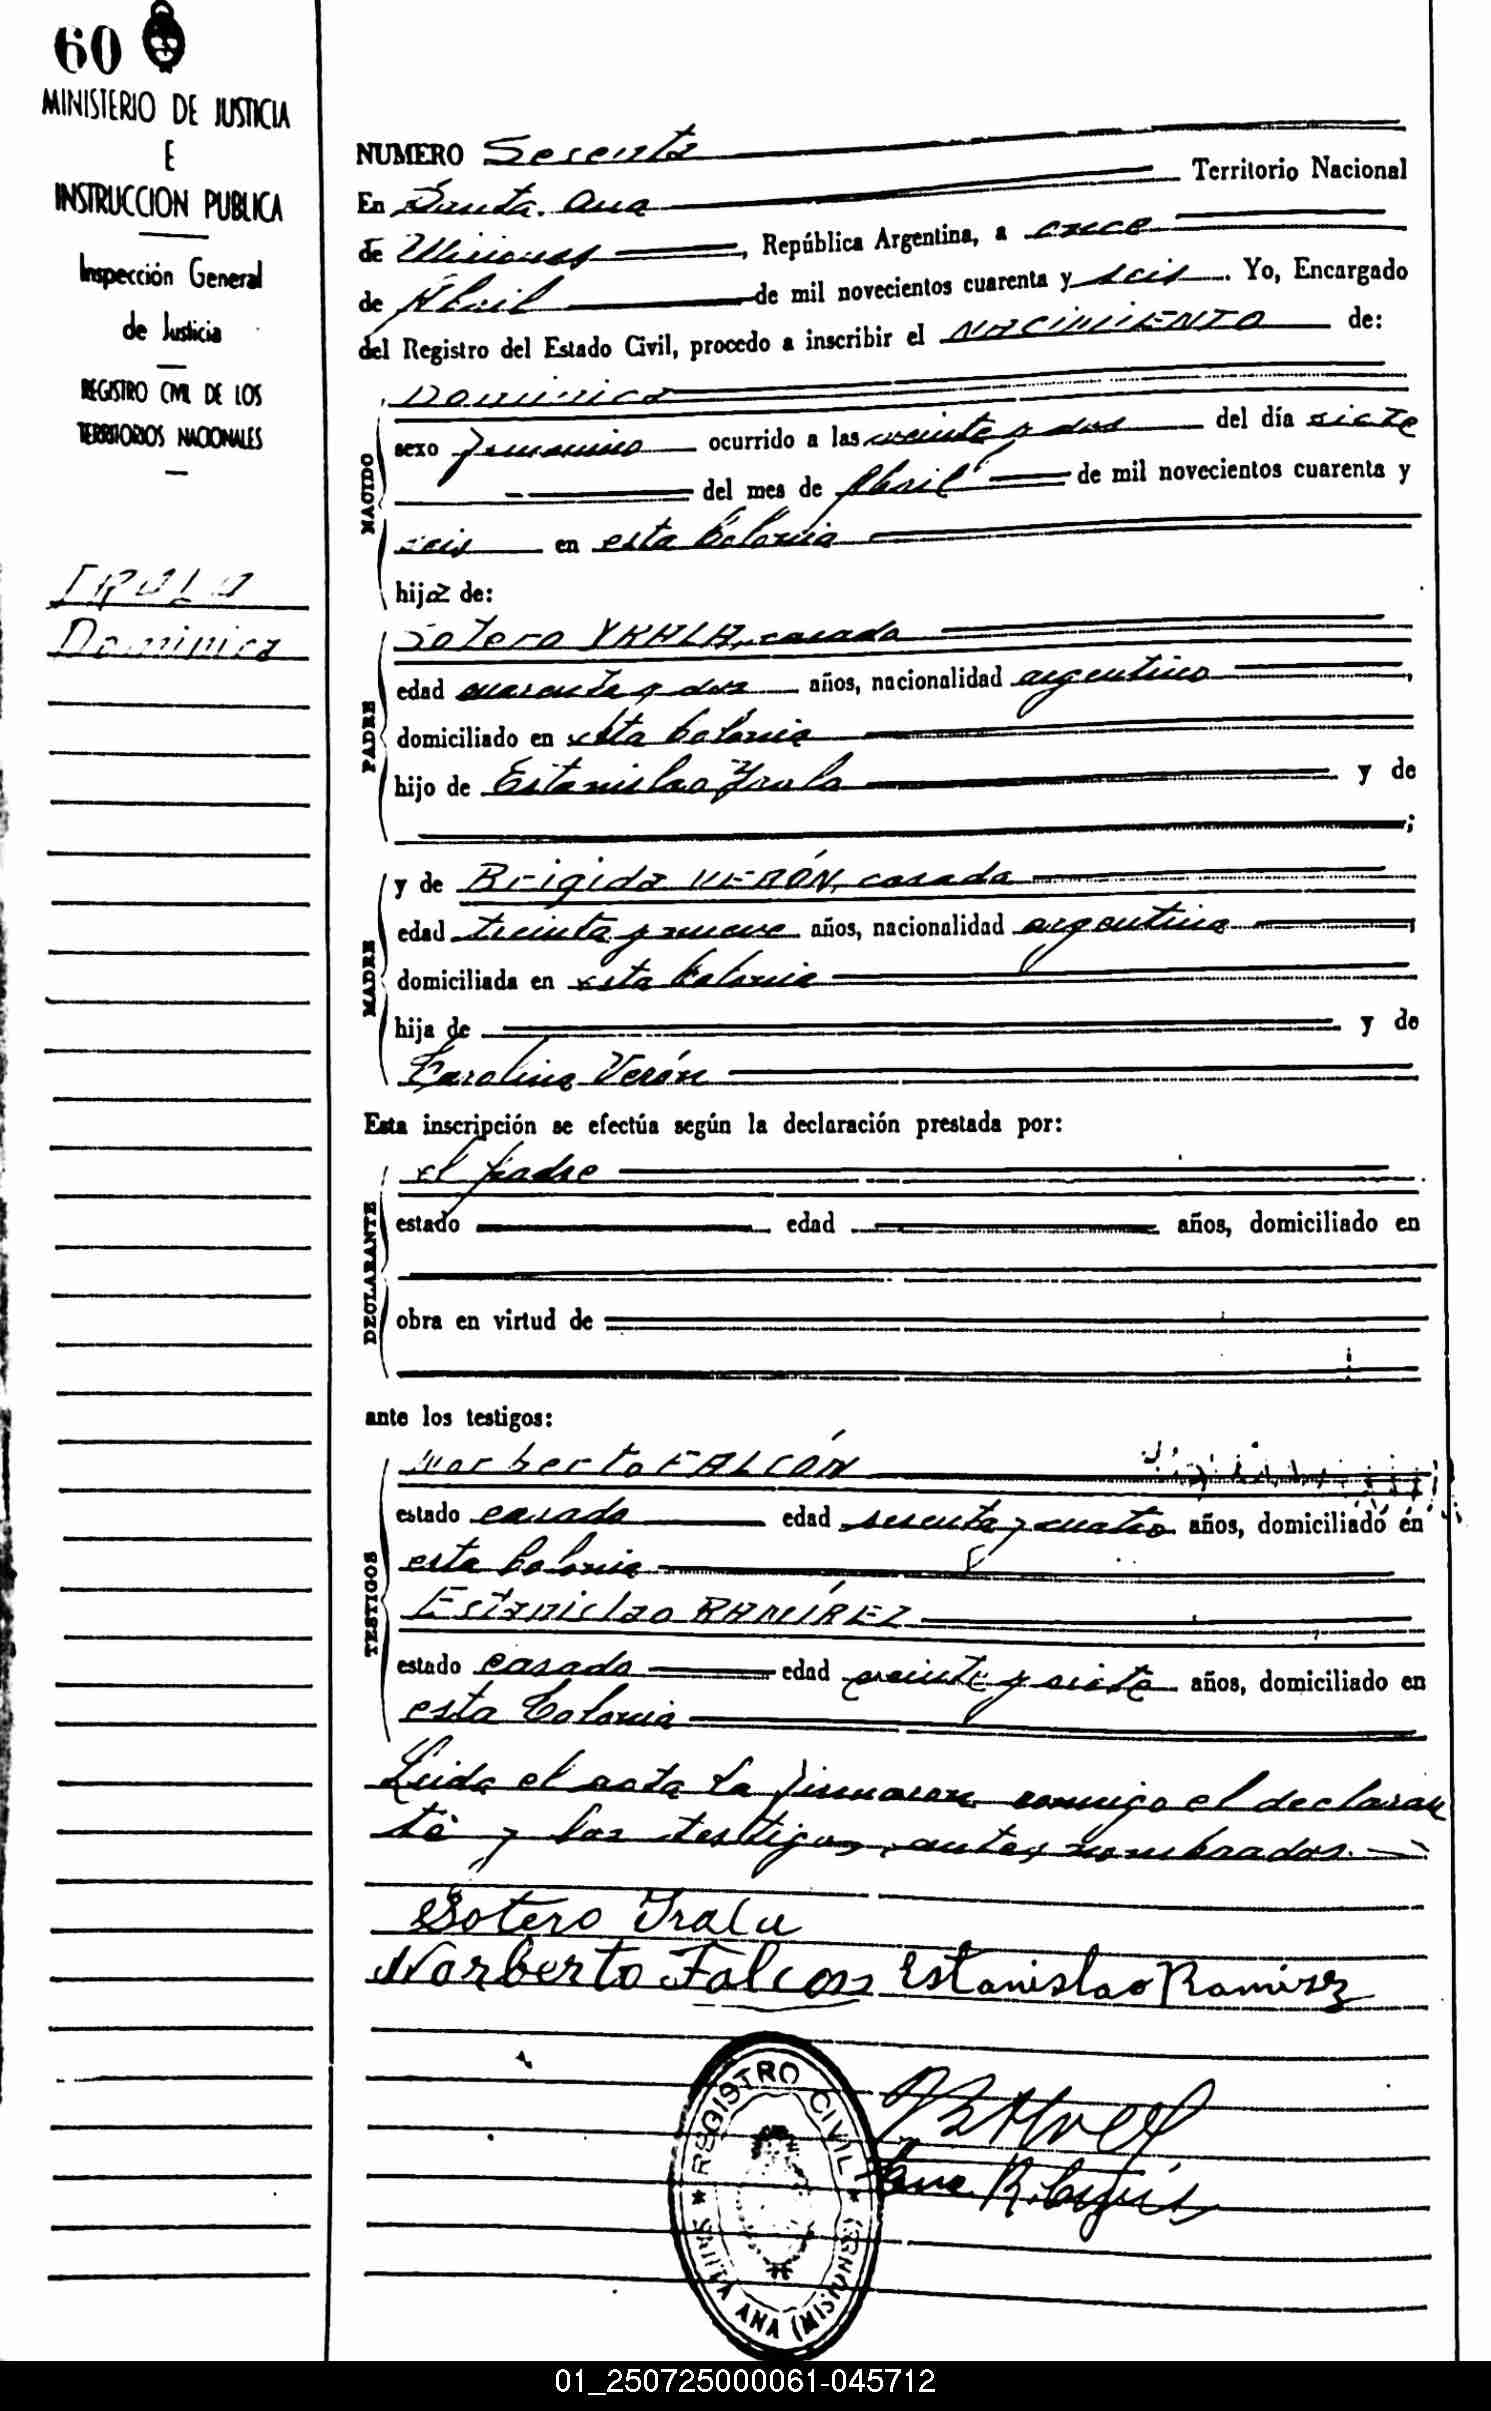 60
MINISTERIO DE JUSTICIA
E
INSTRUCCION PUBLICA
Inspección General
de Justicia
REGISTRO CIVIL DE LOS
TERRITORIOS NACIONALES
IRALA
Dominica
NUMERO Sesenta
En Santa Ana Territorio Nacional
de Misiones, República Argentina, a once
de Abril de mil novecientos cuarenta y seis. Yo, Encargado
del Registro del Estado Civil, procedo a inscribir el NACIMIENTO de:
NACIDO
Dominica
sexo femenino ocurrido a las veinte y dos del día siete
del mes de Abril de mil novecientos cuarenta y
seis en esta Colonia
hija de:
PADRE
Sotero YRALA, casado
edad cuarenta y dos años, nacionalidad argentino
domiciliado en esta Colonia
hijo de Estanislao Yrala y de
;
MADRE
y de Brigida VERÓN, casada
edad treinta y nueve años, nacionalidad argentina
domiciliada en esta Colonia
hija de y de
Carolina Verón
Esta inscripción se efectúa según la declaración prestada por:
DECLARANTE
el padre
estado edad años, domiciliado en
obra en virtud de
ante los testigos:
TESTIGOS
Norberto FALCÓN
estado casado edad sesenta y cuatro años, domiciliado en
esta Colonia
Estanislao RAMÍREZ
estado casado edad veinte y siete años, domiciliado en
esta Colonia
Leida el acta la firmaron conmigo el declaran
te y los testigos, antes nombrados.
Sotero Irala
Norberto Falcon Estanislao Ramirez
REGISTRO CIVIL
SANTA ANA (MISIONES)
01_250725000061-045712